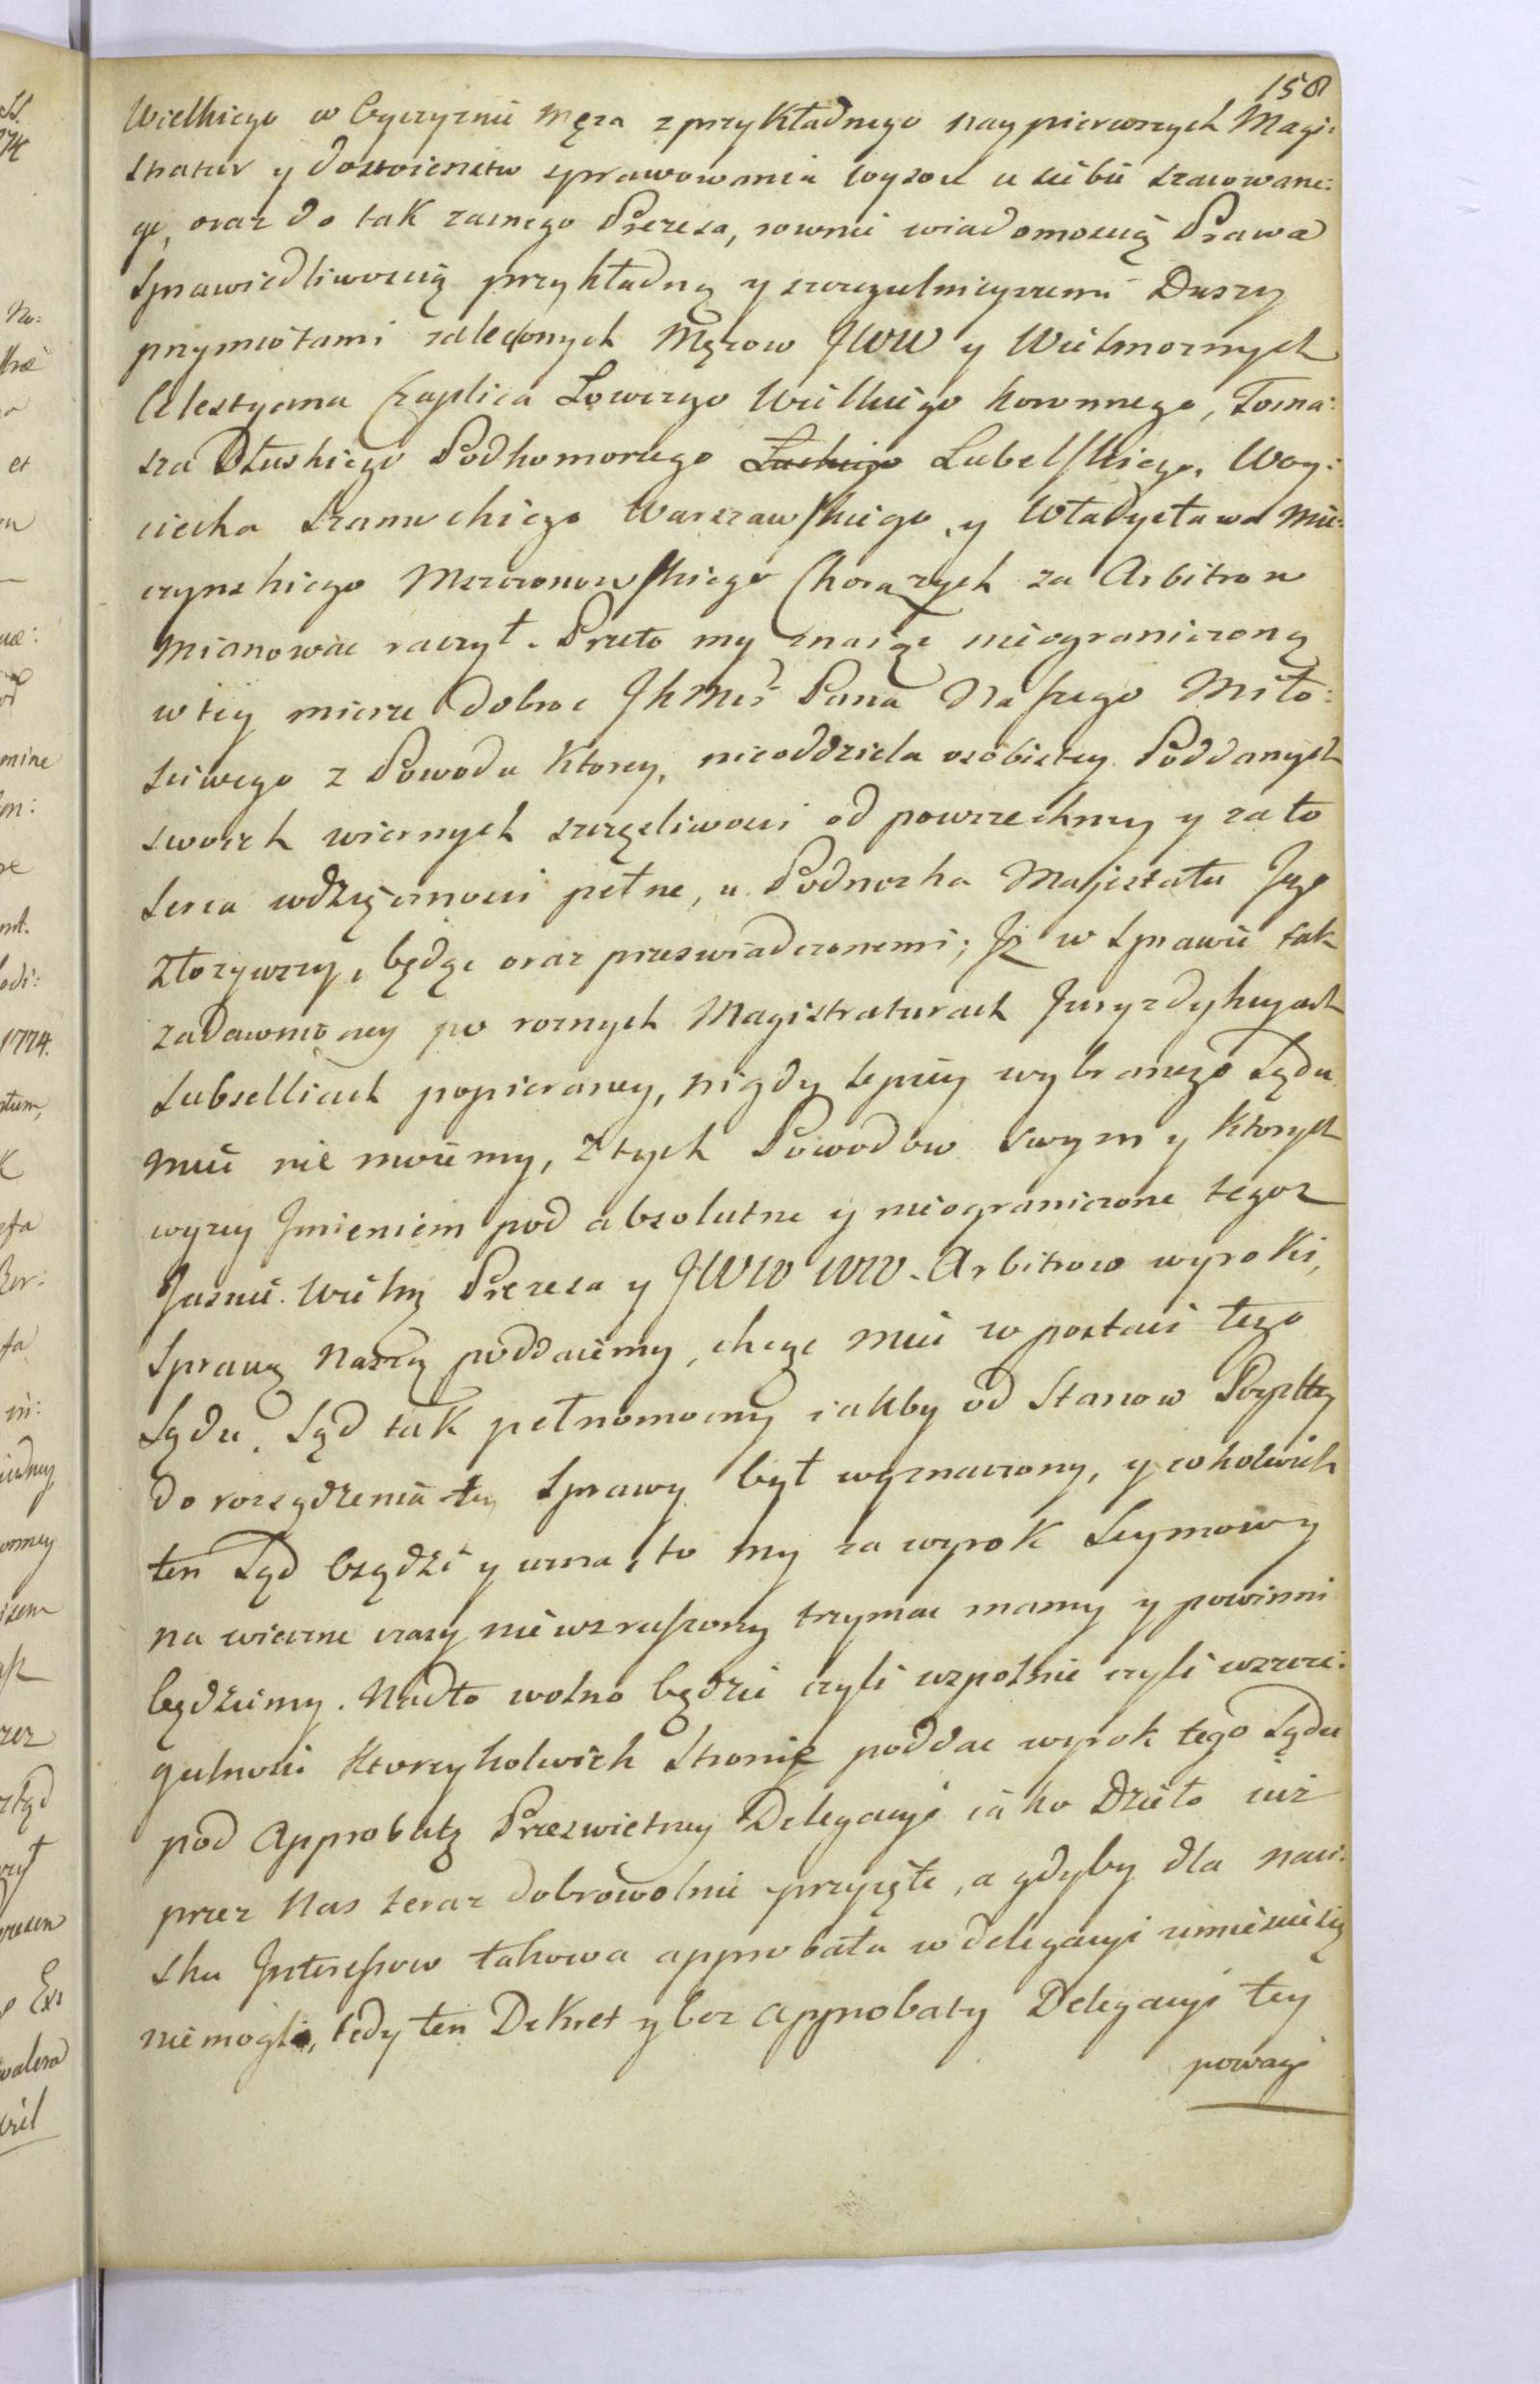 158
Wielkiego w Oyczyznie Męża z przykładnego naypierwszych Magi:
stratur y dostoienstw sprawowania wysoce u siebie szacowane:
go, oraz do tak zacnego Prezesa, rownie wiadomoscią Prawa
Sprawiedliwoscią przykładną y szczegulnieyszemi Duszy
przymiotami zaleconych Mężow JWW y Wielmoznych
Celestyana Czaplica Łowczego Wielkiego koronnego, Toma:
sza Dłuskiego Podkomorzego Lubelskiego, Woy:
ciecha Szamockiego Warszawskiego, y Władysława Mie:
czynskiego Mszczonowskiego Chorązych za Arbitrow
mianowac raczył. Przeto my znaiąc nieograniczoną
w tey mierze dobroc JKMci Pana Naszego Miło:
sciwego z Powodu ktorey, nieoddziela osobistey Poddanych
swoich wiernych szczęsliwosci od powszechney y za to
serca wdzięcznosci pełne, u Podnozka Majestatu Jego
złozywszy, będąc oraz przeswiadczonemi; Jz w Sprawie tak
zadawnioney po roznych Magistraturach Juryzdykcyach
Subselliach popieraney, nigdy lepiey wybranego Sądu
miec nie mozemy, z tych Powodow swym y ktorych
wyzey Jmieniem pod absolutne y nieograniczone tegoz
Jasnie Wielmę Prezesa y JWW WW. Arbitrow wyroki,
Sprawę naszę poddaiemy, chcąc miec w postaci tego
Sądu, Sąd tak pełnomocny iakby od Stanow Rzpltey
do rozsądzenia tey Sprawy był wyznaczony, y cokolwiek
ten Sąd osądzi y uzna, to my za wyrok Seymowy
na wieczne czasy niewzruszony trzymac mamy y powinni
będziemy. Nadto wolno będzie czyli wspolnie czyli wszcze:
gulnosci ktoreykolwiek Stronie poddac wyrok tego Sądu
pod Approbatę Przeswietney Delegacyi iako Dzieło iuz
przez Nas teraz dobrowolnie przyięte, a gdyby dla naci:
sku Jnteressow takowa approbata w delegacyi umiescic się
niemogła, tedy ten Dekret y bez Approbaty Delegacyi tey
powagi